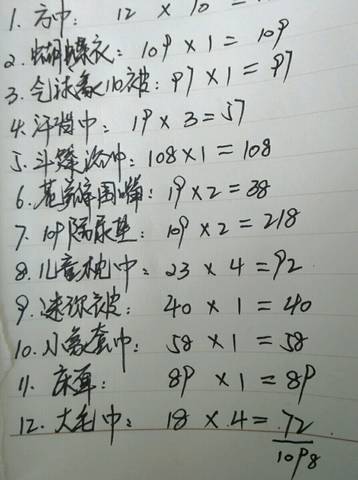 1. 方巾: 12 × 10 =
2. 蝴蝶衣: 109 × 1 = 109
3. 气球象小被: 97 × 1 = 97
4. 汗背巾: 19 × 3 = 57
5. 斗篷浴巾: 108 × 1 = 108
6. 花瓣围嘴: 19 × 2 = 38
7. 隔尿垫: 109 × 2 = 218
8. 儿童枕巾: 23 × 4 = 92
9. 迷你被: 40 × 1 = 40
10. 小象套巾: 58 × 1 = 58
11. 床单: 89 × 1 = 89
12. 大毛巾: 18 × 4 = 72
1098